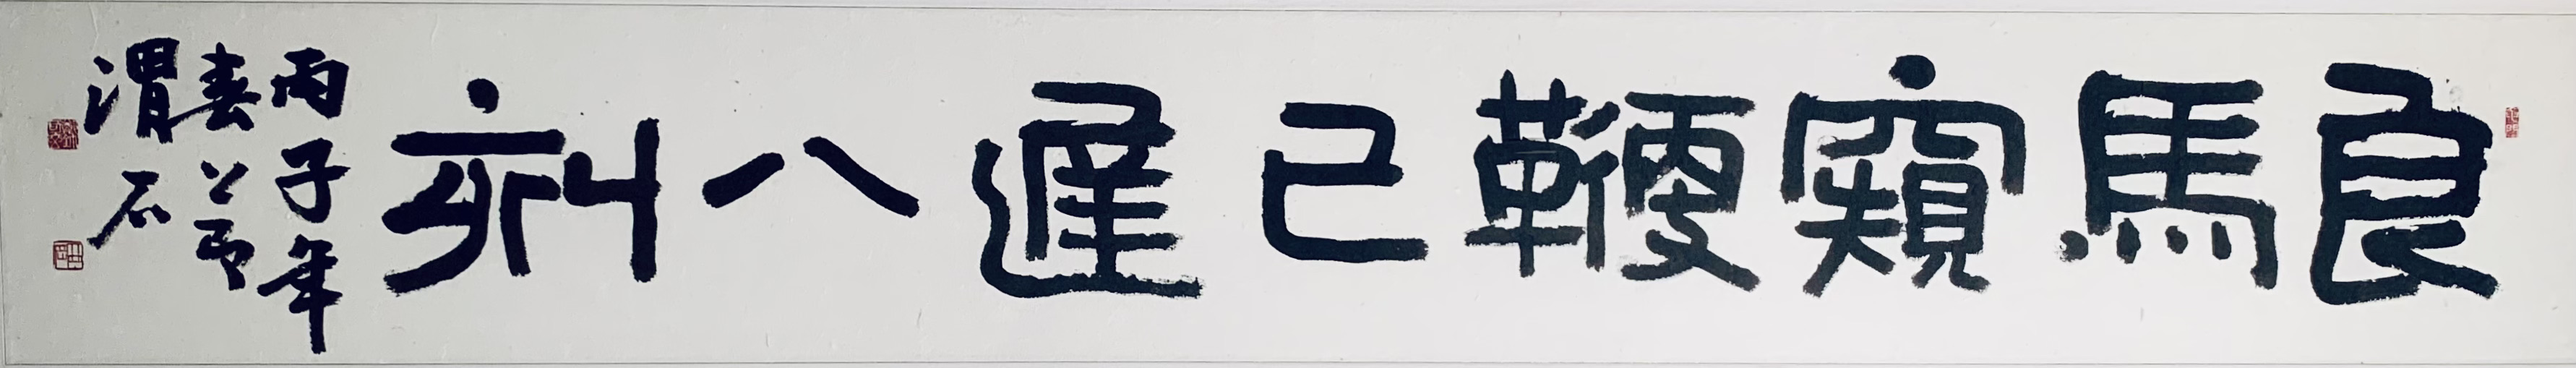 良馬窺鞭已遲八刻
丙子年
春
渭石